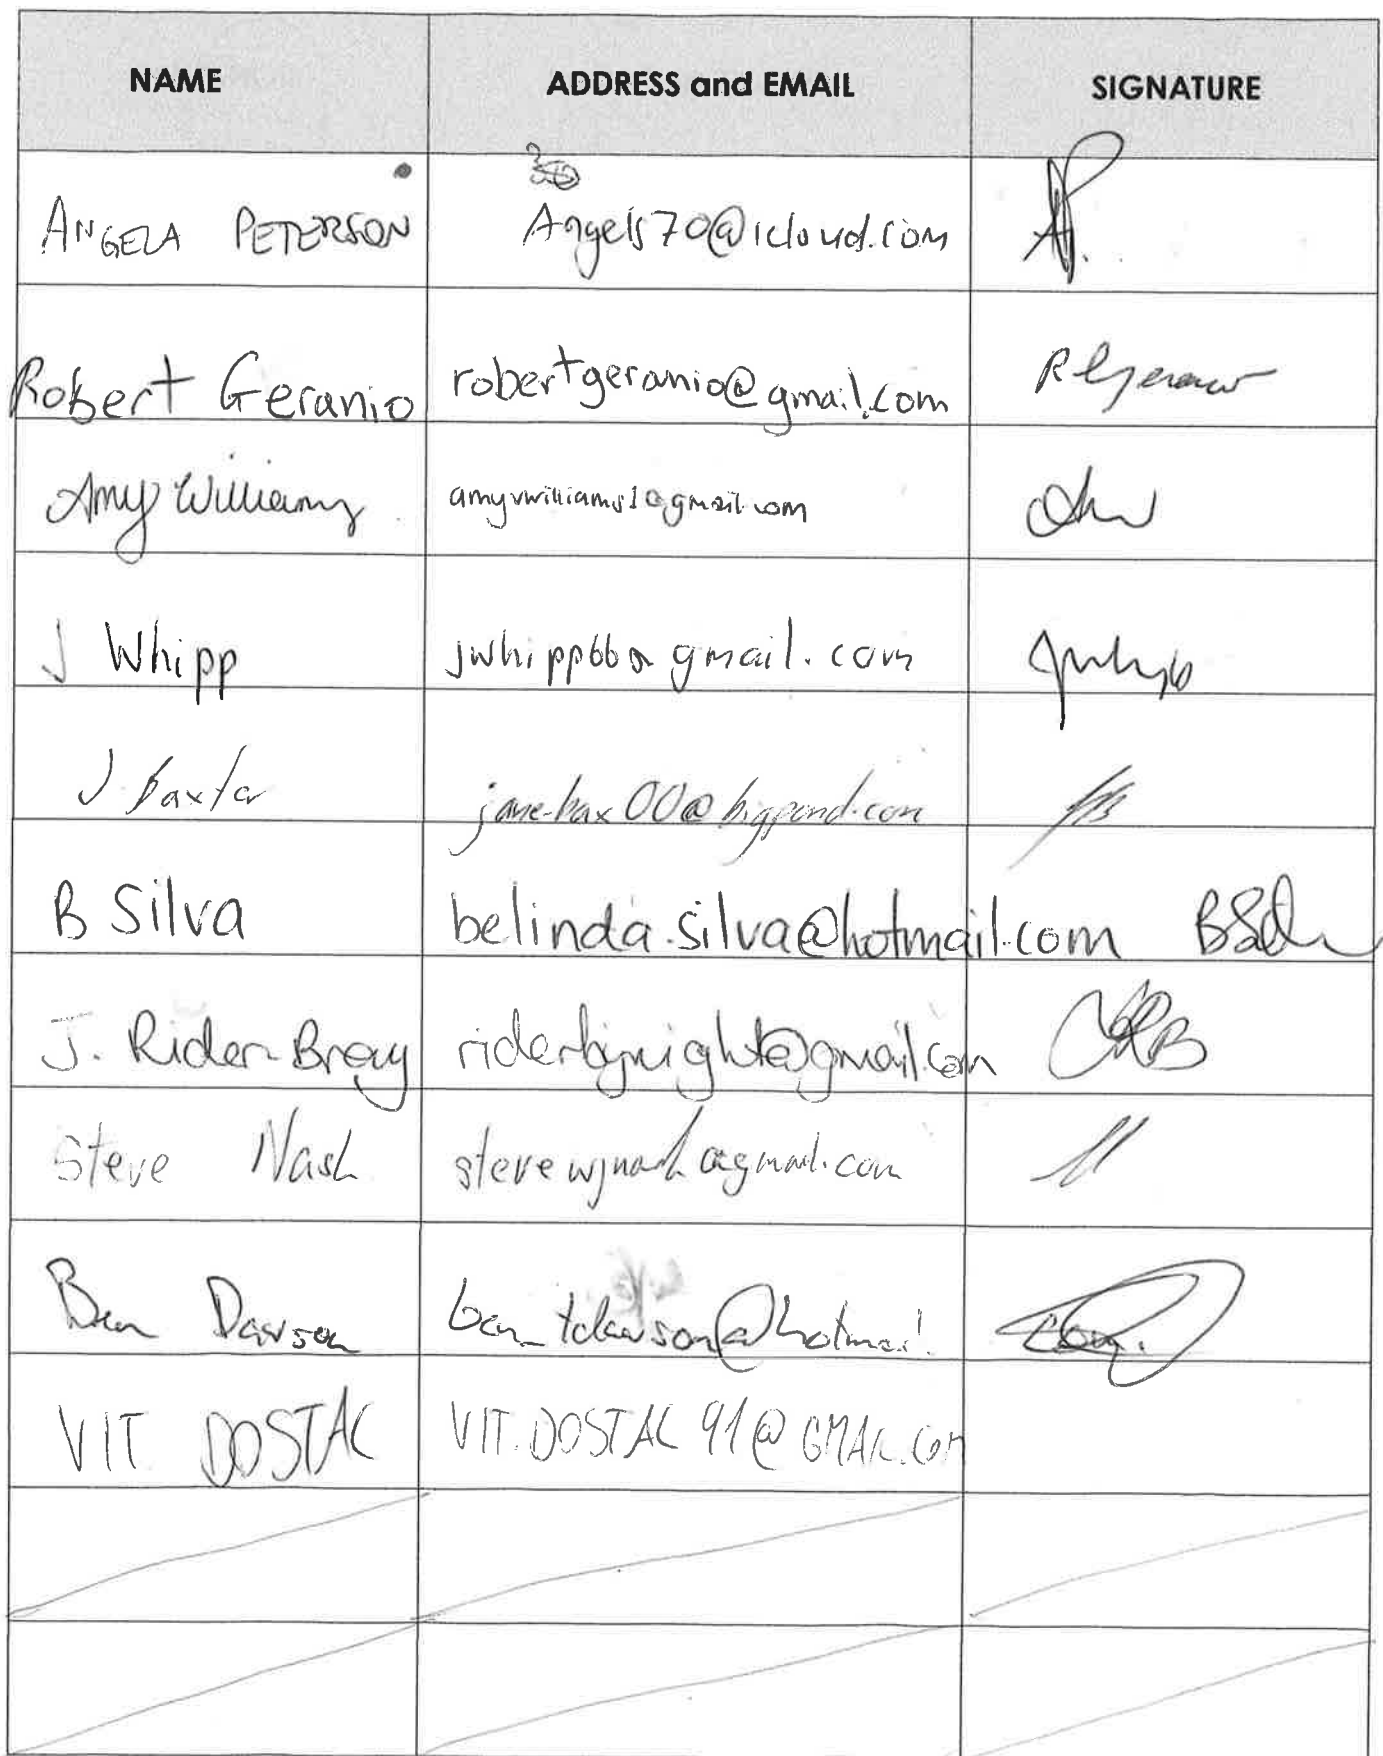 NAME ADDRESS and EMAIL SIGNATURE
ANGELA PETERSON Angels70@icloud.com
Robert Geranio robertgeranio@gmail.com
Amy Williams amyvwilliams1@gmail.com
J Whipp jwhipp66@gmail.com
J Baxter jane-bax00@bigpond.com
B Silva belinda.silva@hotmail.com
J. Rider-Bray riderbynight@gmail.com
Steve Nash stevewjnash@gmail.com
Ben Dawson ben_tdawson@hotmail
VIT DOSTAL VIT.DOSTAL91@GMAIL.COM